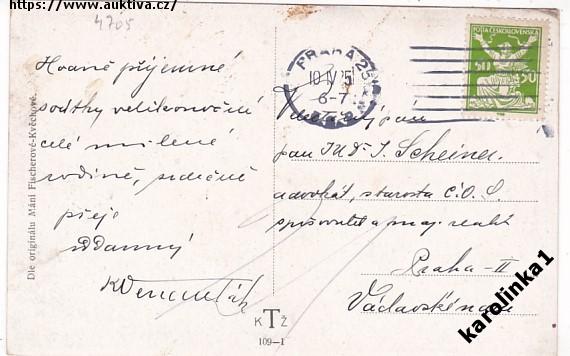 https://www.auktiva.cz/
4705
Hravě příjemné
svátky velikonoční
celé milené
rodině, srdečně
přeje
oddaný
Dle originálu Máni Fischerové-Kvěchové.
K T Ž
109-1
PRAHA 25
10 IV 25
6-7
POŠTA ČESKOSLOVENSKÁ
50 50
pan
pan JUDr J. Scheiner
advokát, starosta Č.O.S.
spisovatel a maj. realit
Praha-II
Václavské nám
karolinka1